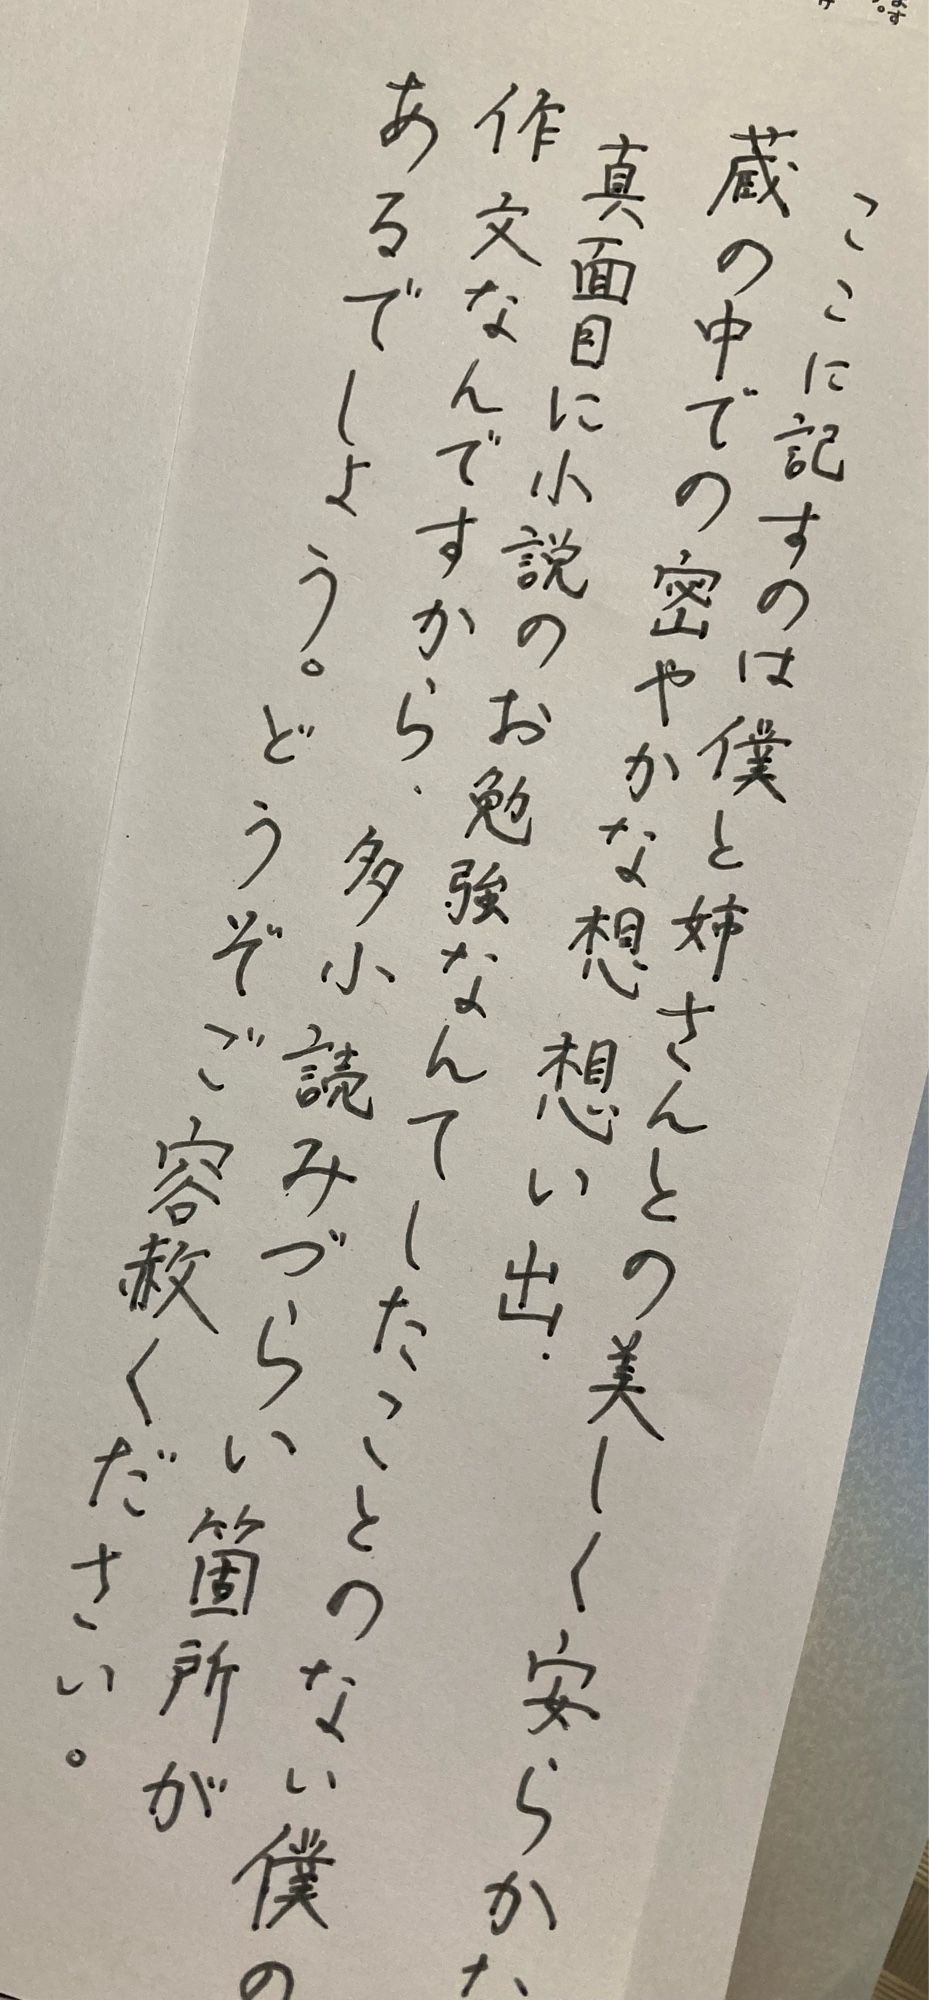 ここに記すのは僕と姉さんとの美しく安らかな
蔵の中での密やかな想想い出.
真面目に小説のお勉強なんてしたことのない僕の
作文なんですから、多小読みづらい箇所が
あるでしょう。どうぞご容赦ください。